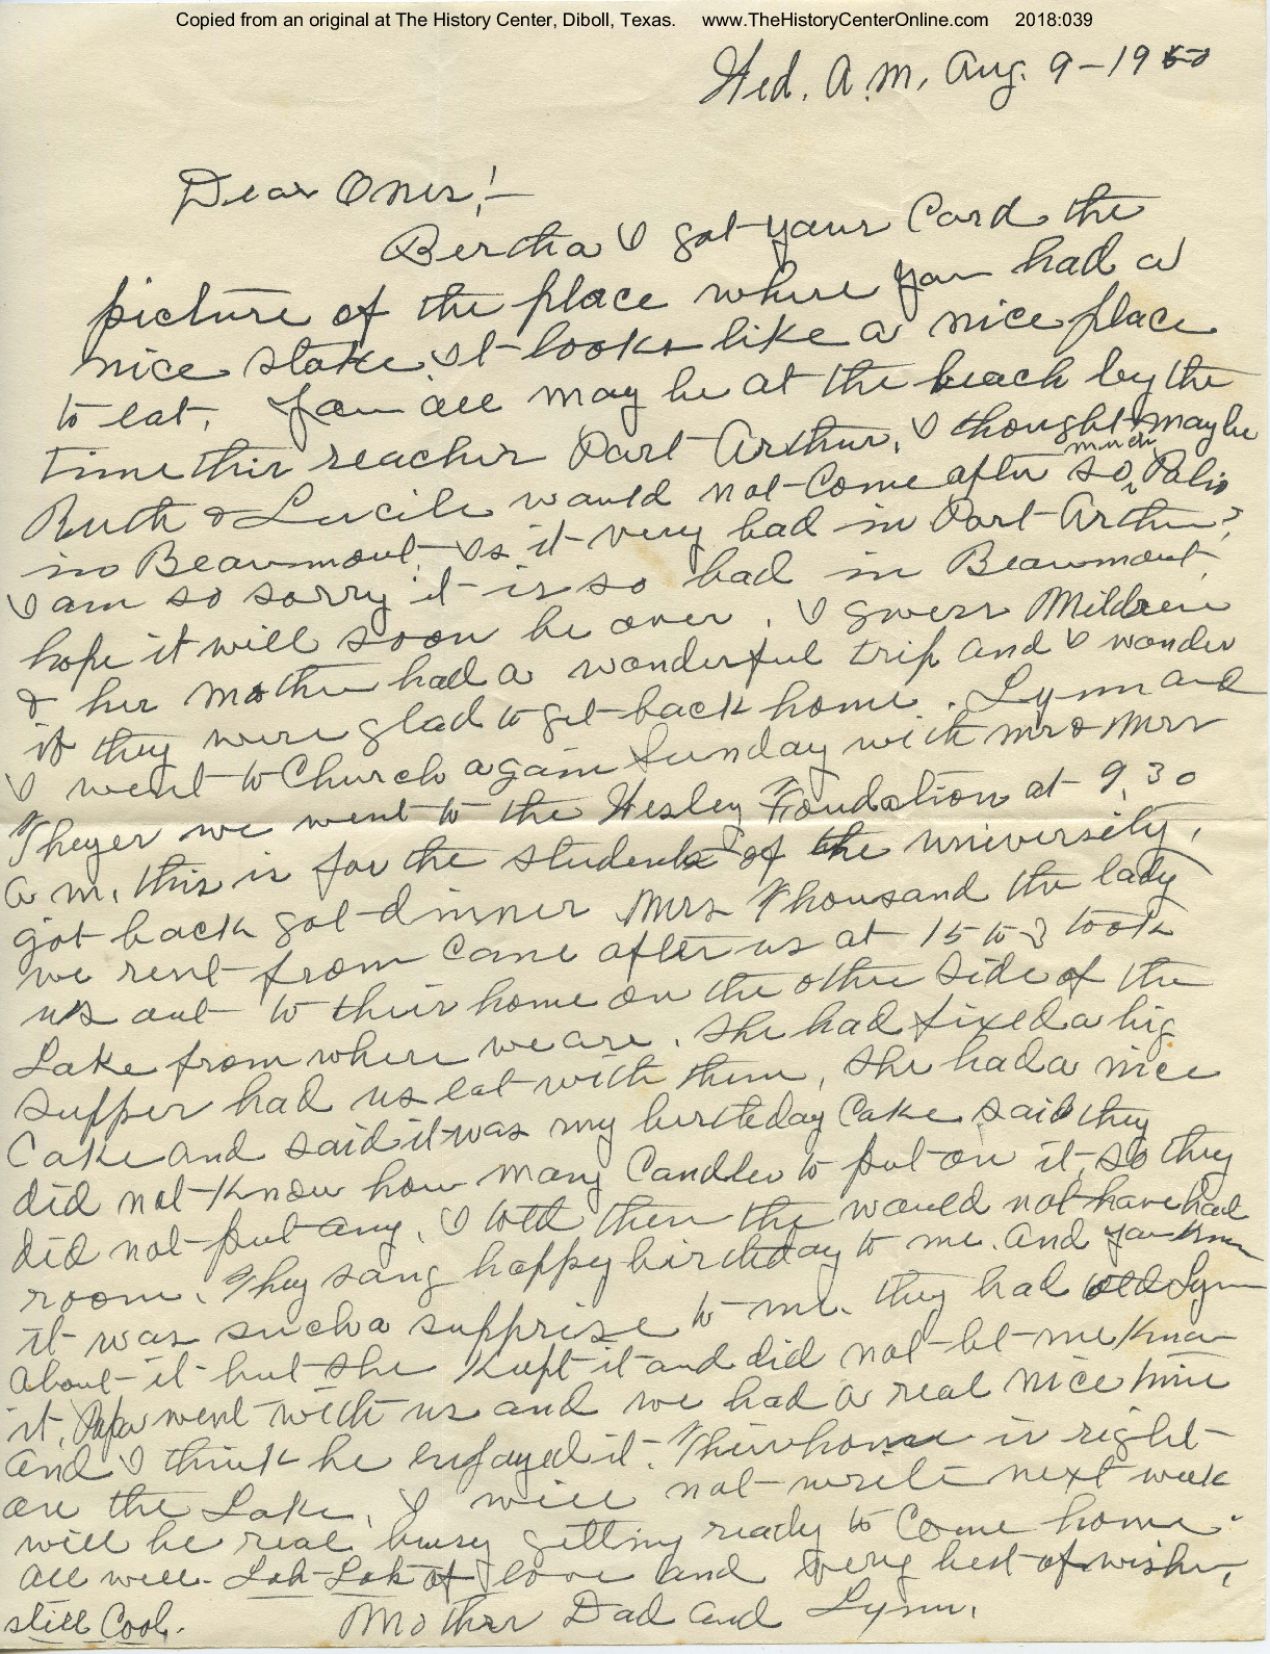 Copied from an original at The History Center, Diboll, Texas. www.TheHistoryCenterOnline.com 2018:039
Wed. A.M, Aug. 9-1950
Dear Ones,!-
Bertha I got your Card the
picture of the place where you had a
nice stake. It looks like a nice place
to eat. You all may be at the beach by the
time this reaches Port Arthur, I thought maybe
Ruth & Lucile would not come after so much Polio
in Beaumont. Is it very bad in Port Arthur?
I am so sorry it is so bad in Beaumont.
hope it will soon be over. I guess Mildren
& her mother had a wonderful trip and I wonder
if they were glad to get back home. Lynn and
I went to Church again Sunday with Mr & Mrs
Theyer we went to the Wesley Foundation at 9.30
a m. this is for the students of the university,
got back got dinner Mrs Thousand the lady
we rent from came after us at 15 to 3 took
us out to their home on the other side of the
Lake from where we are. She had fixed a big
supper had us eat with them, she had a nice
Cake and said it was my birthday Cake said they
did not know how many Candles to put on it, so they
did not put any. I told them the would not have had
room. They sang happy birthday to me. and you know
it was such a supprise to me. they had told Lynn
about it but she kept it and did not let me know
it. Papa went with us and we had a real nice time
and I think he enjoyed it. Their home is right
on the Lake. I will not write next week
will be real busy getting ready to come home.
all well. Lots Lots of love and very best of wishes,
still Cool. Mother Dad and Lynn.